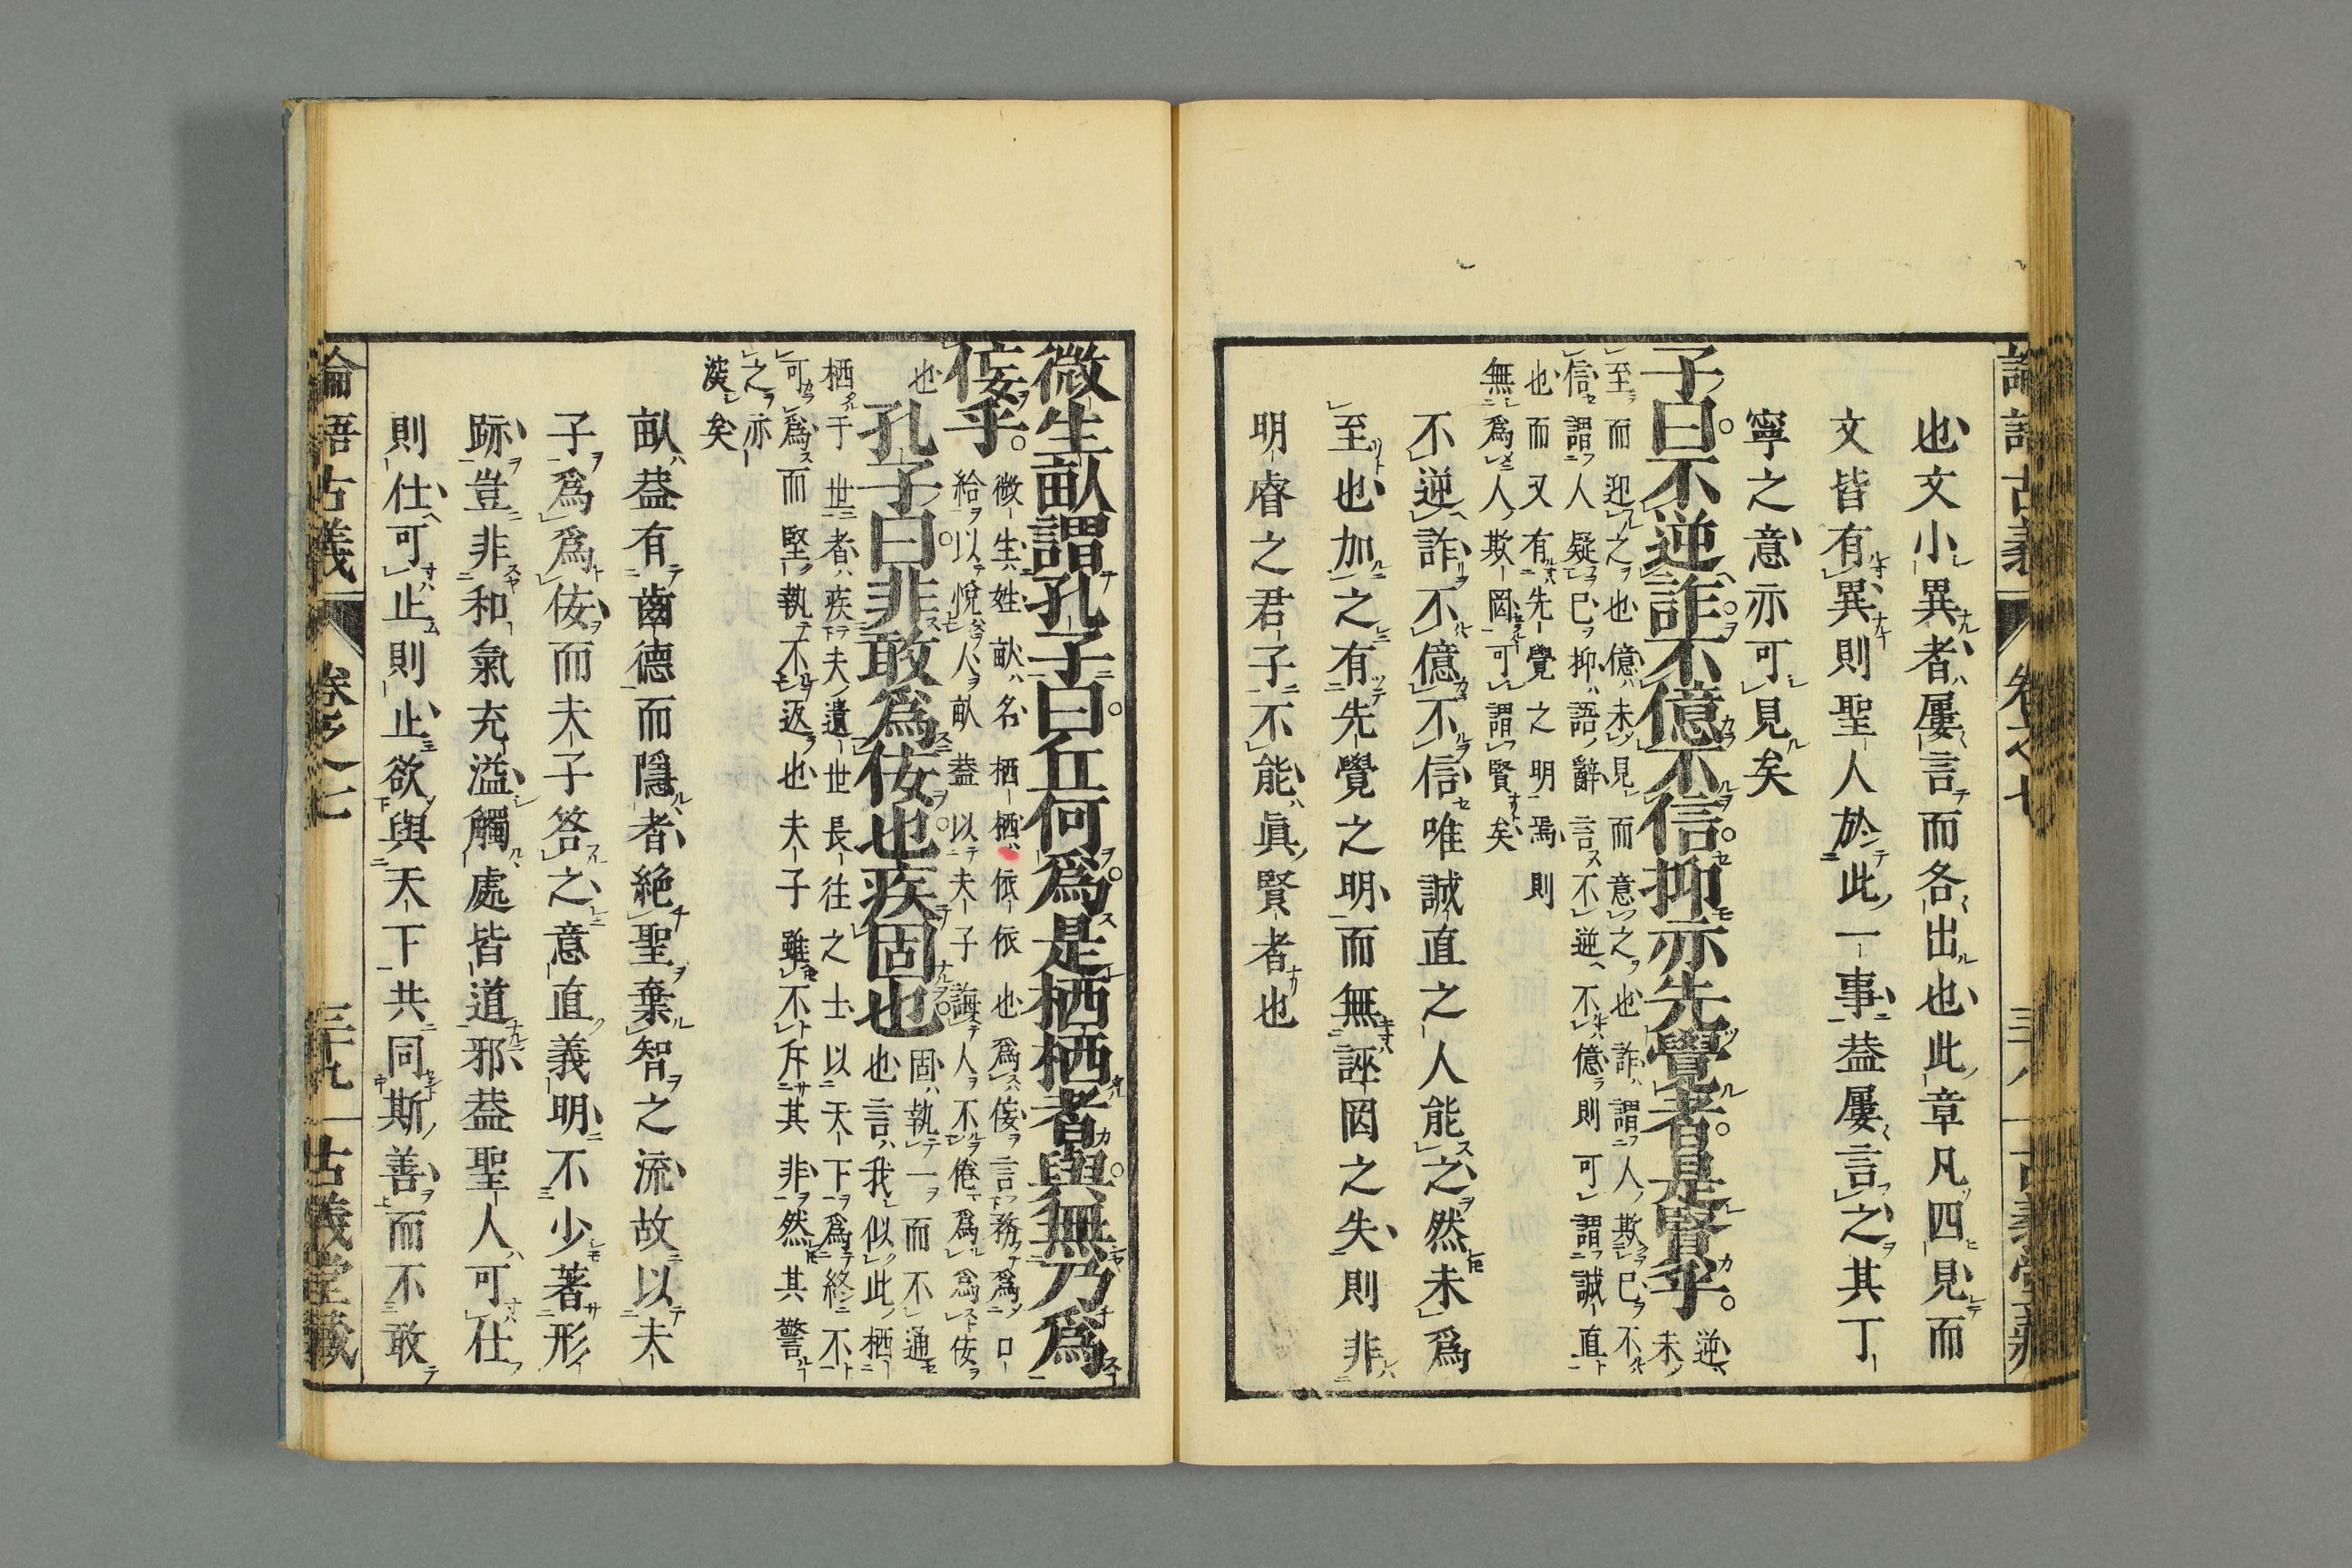 也文小異者屢言而各出也此章凡四見而
文皆有異則聖人於此一事葢屢言之其丁
寧之意亦可見矣
子曰不逆詐不億不信抑亦先覺者是賢乎
逆未
至而迎之也億未見而意之也詐謂人欺己不
信謂人疑己抑語辭言不逆不億則可謂誠直
也而又有先覺之明焉則
無爲人欺罔可謂賢矣
不逆詐不億不信唯誠直之人能之然未爲
至也加之有先覺之明而無誣罔之失則非
明睿之君子不能眞賢者也
微生畝謂孔子曰丘何爲是栖栖者與無乃爲
佞乎
微生姓畝名栖栖依依也爲佞言務爲口
給以悅人畝葢以夫子誨人不倦爲爲佞
也
孔子曰非敢爲佞也疾固也
固執一而不通
也言我似此栖
栖于世者疾夫遺世長往之士以天下爲終不
可爲而堅執不返也夫子雖不斥其非然其警
之亦
深矣
畝葢有齒德而隱者絶聖棄智之流故以夫
子爲爲佞而夫子答之意直義明不少著形
跡豈非和氣充溢觸處皆道邪葢聖人可仕
則仕可止則止欲與天下共同斯善而不敢
論語古義
卷之七
三十九
古義堂藏